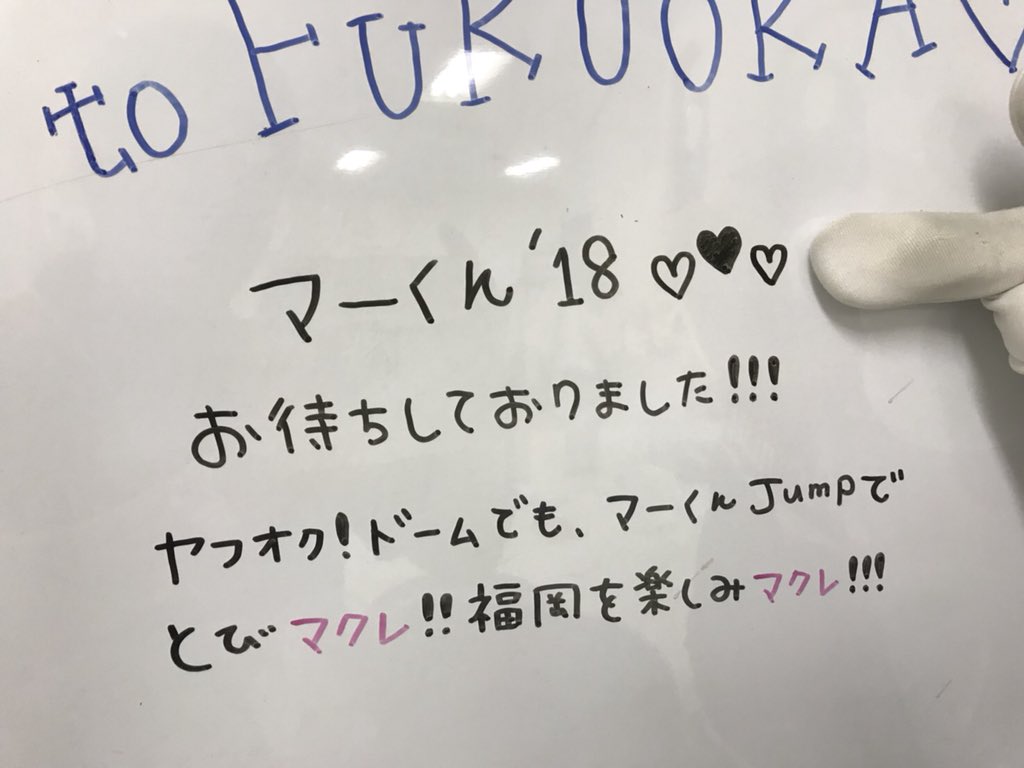 to FUKUOKA
マーくん '18 ♡♥♡
お待ちしておりました!!!
ヤフオク!ドームでも、マーくんJumpで
とびマクレ!!福岡を楽しみマクレ!!!